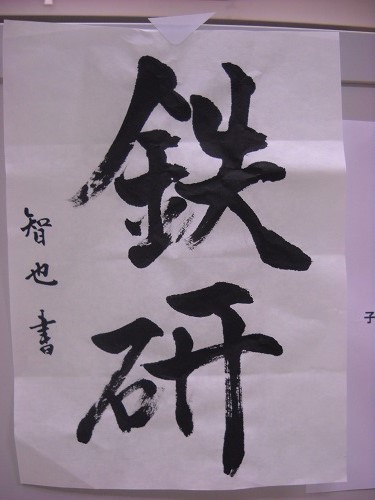 鉄研
智也書
子